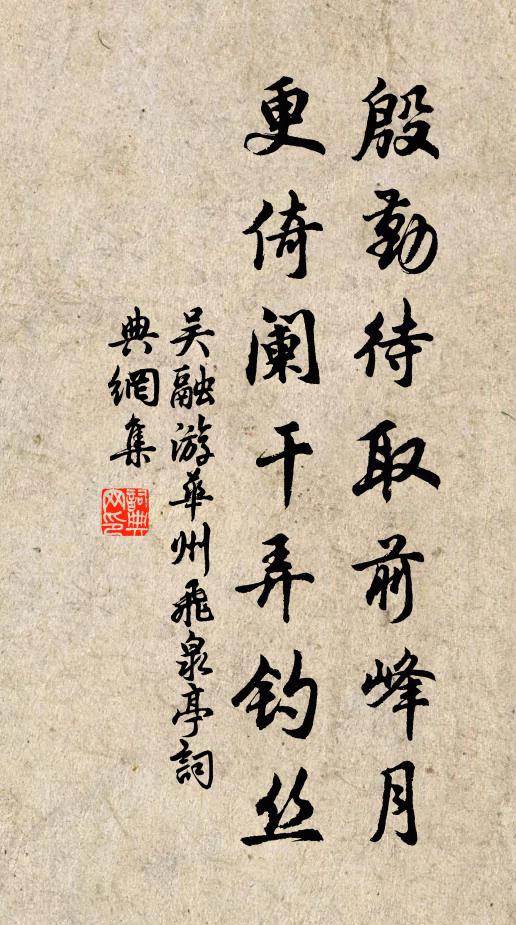 殷勤待取前峰月
更倚阑干弄钓丝
吴融游华州飛泉亭詞
典網集
詞典网印